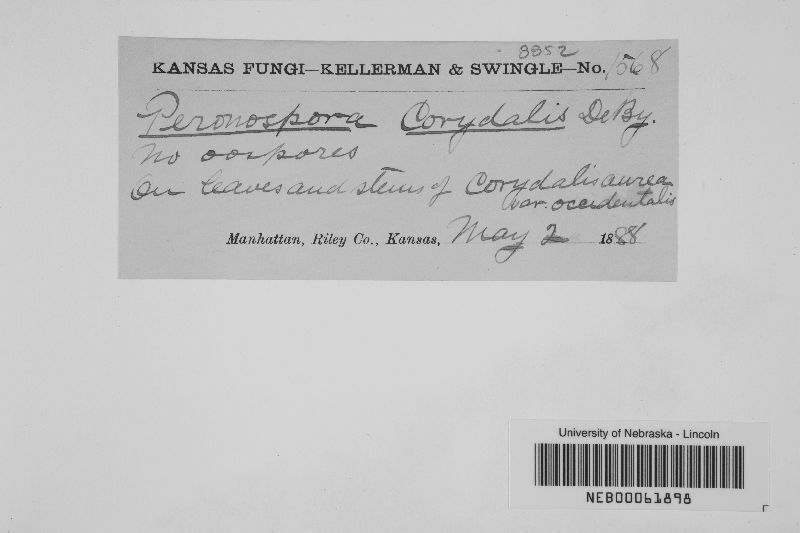 8852
KANSAS FUNGI—KELLERMAN & SWINGLE—No. 1568
Peronospora Corydalis DeBy.
No oospores
On leaves and stems of Corydalis aurea
var. occidentalis
Manhattan, Riley Co., Kansas, May 2 1888
University of Nebraska - Lincoln
NEB00061898